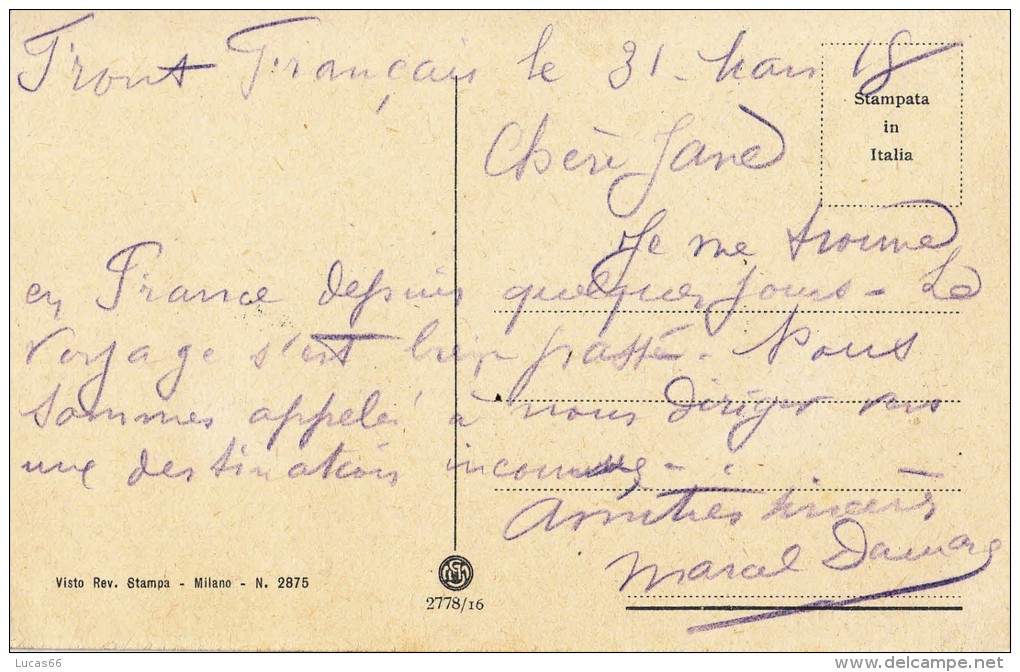 Front Français le 31 Mars 18
Stampata
in
Italia
Chère Jane
Je me trouve
en France depuis quelques jours - Le
voyage s'est bien passé - Nous
sommes appelés à nous diriger vers
une destination inconnue -
Amitiés sincères
Marcel
Visto Rev. Stampa - Milano - N. 2875
2778/16
Lucas66
delcampe.net